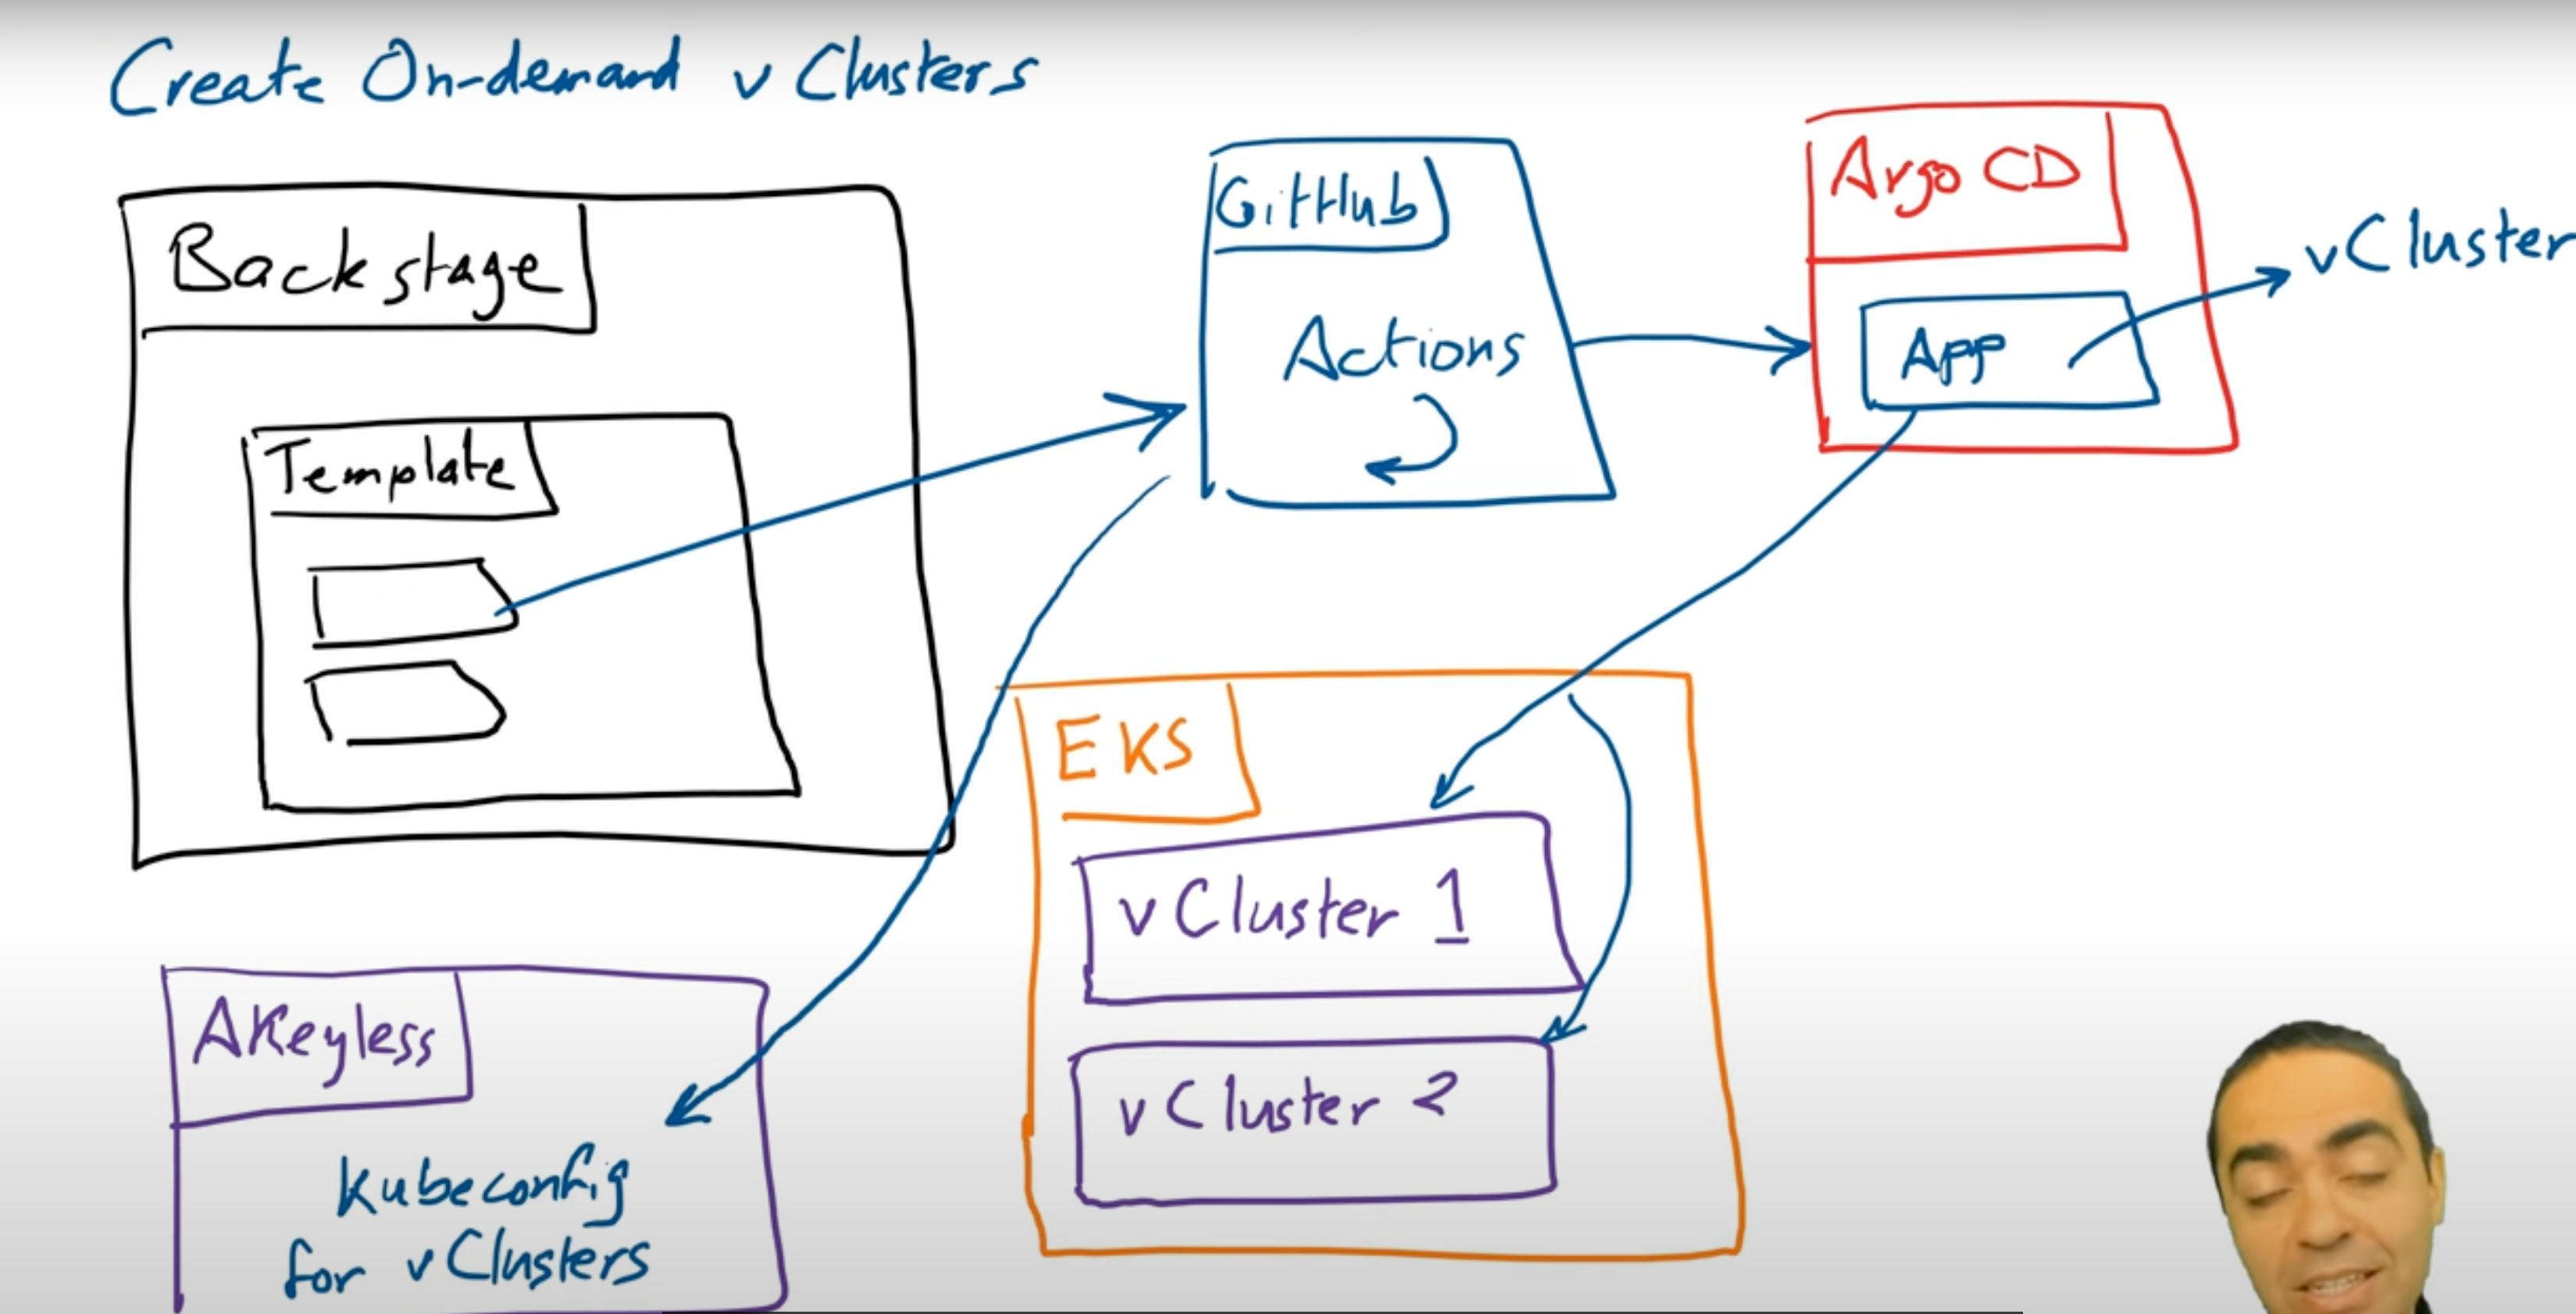 Create On-demand vClusters
Backstage
Template
GitHub
Actions
Argo CD
App
vCluster
EKS
vCluster 1
vCluster 2
AKeyless
Kubeconfig
for vClusters